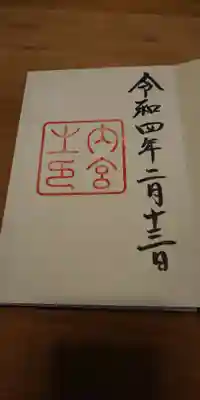 令和四年二月十三日
内宮
之印